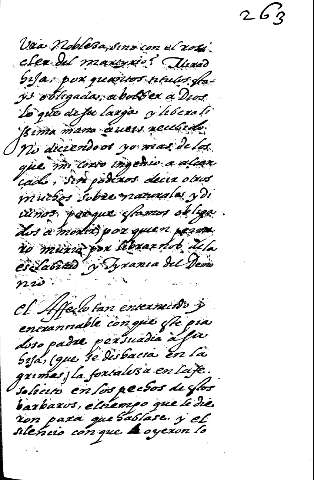 263
Vra Nobleza, sino con el rosi
cler del martyrio? Mirad
hija, por quantos titulos sta
ys obligada, a bolber a Dios
lo que de su larga y liberali
ssima mano aveis recebido.
No diciendoos yo mas de los
que mi corto ingenio a alcan
çado, sin poderos decir otros
muchos sobre naturales, y di
uinos, porque stamos obliga
dos a morir por quien primero
murio por librarnos de la
esclabitud y Tyrania del Demo
nio
El Affecto tan enternecido y
entrannable con que ste pia
doso padre persuadia a su
hija, (que se disbacia en la
grimas) la fortaleza en la fe.
solicito en los pechos de stos
barbaros, el tiempo que le die
ron para que hablase, y el
silencio con que oyeron lo